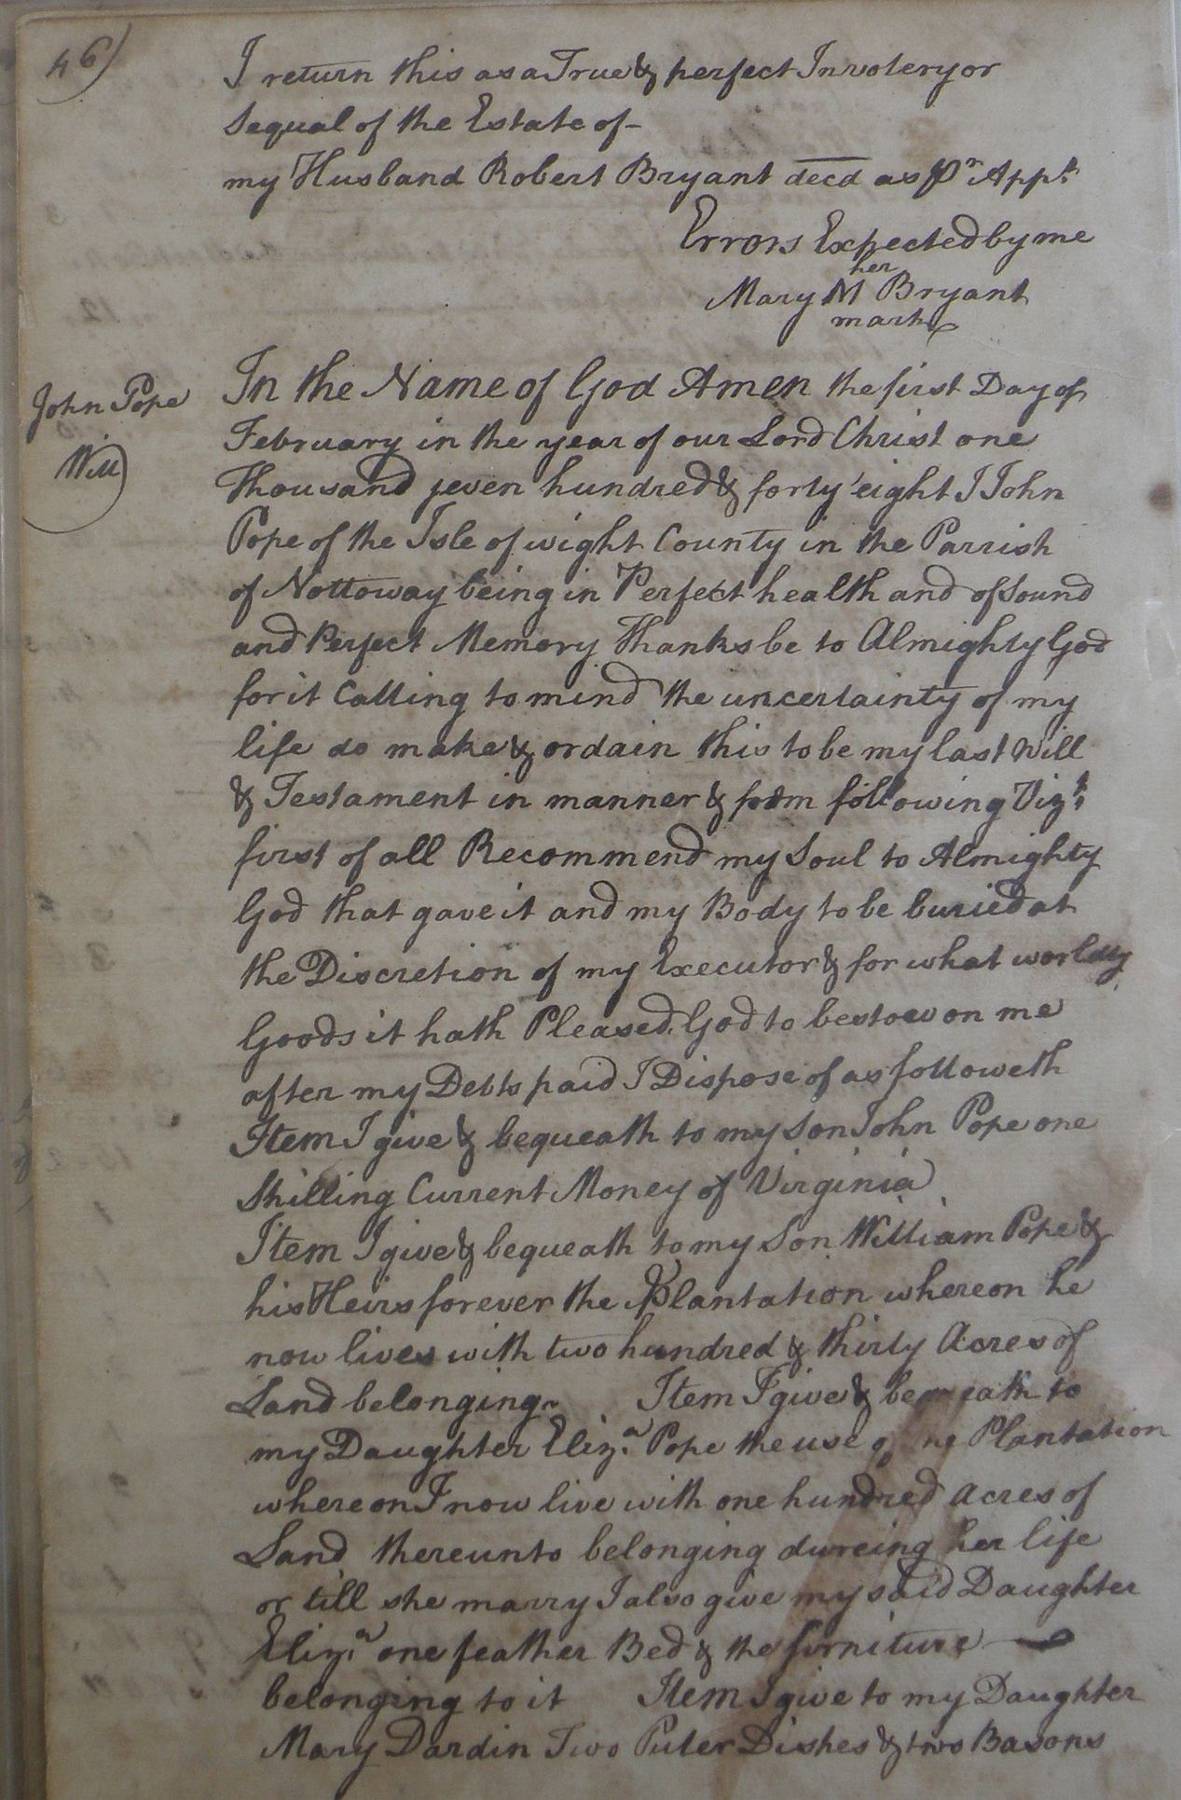 46)
I return this as a True & perfect Invotery or
Sequal of the Estate of -
my Husband Robert Bryant decd as pr Appt
Errors Expected by me
her
Mary M Bryant
mark
John Pope
Will
In the Name of God Amen the first Day of
February in the year of our Lord Christ one
Thousand seven hundred & forty eight I John
Pope of the Isle of wight County in the Parrish
of Nottoway being in Perfect health and of Sound
and Perfect Memory Thanks be to Almighty God
for it Calling to mind the uncertainty of my
life do make & ordain this to be my last Will
& Testament in manner & form following Vizt
first of all Recommend my Soul to Almighty
God that gave it and my Body to be buried at
the Discretion of my Executor & for what worldly
Goods it hath Pleased God to bestow on me
after my Debts paid I Dispose of as followeth
Item I give & bequeath to my Son John Pope one
Shilling Current Money of Virginia
Item I give & bequeath to my Son William Pope &
his Heirs forever the Plantation whereon he
now lives with two hundred & thirty Acres of
Land belonging Item I give & bequeath to
my Daughter Eliza Pope the use of Plantation
whereon I now live with one hundred Acres of
Land thereunto belonging dureing her life
or till she marry I also give my said Daughter
Eliza one feather Bed & the furniture
belonging to it Item I give to my Daughter
Mary Dardin Two Puter Dishes & two Basons